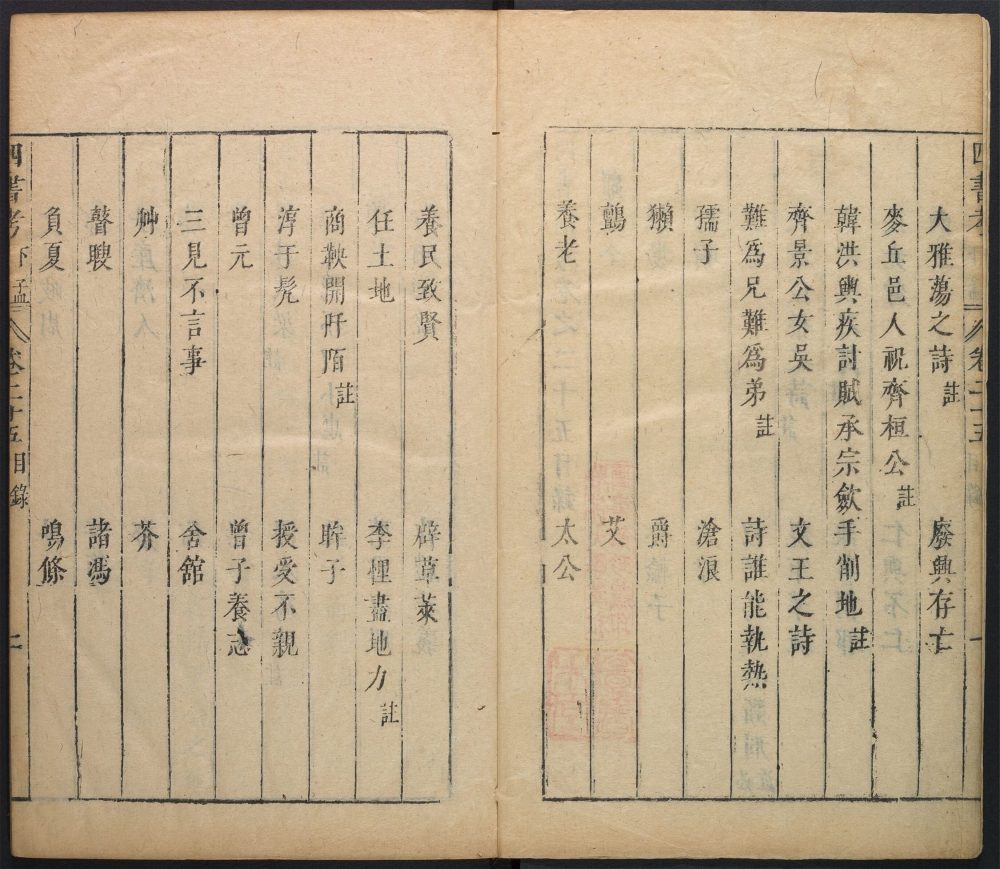 大雅蕩之詩註　廢興存亡
麥丘邑人祝齊桓公註
韓洪興疾討賊承宗斂手削地註
齊景公女吳　文王之詩
難為兄難為弟註　詩誰能執熱
孺子　滄浪
獺　爵
鸇　艾
養老　太公
養民致賢　辟草萊
任土地　李悝盡地力註
商鞅開阡陌註　眸子
淳于髡　授受不親
曾元　曾子養志
三見不言事　舍館
艸　芥
瞽瞍　諸馮
負夏　鳴條
四書考下孟　卷二十五目錄　二